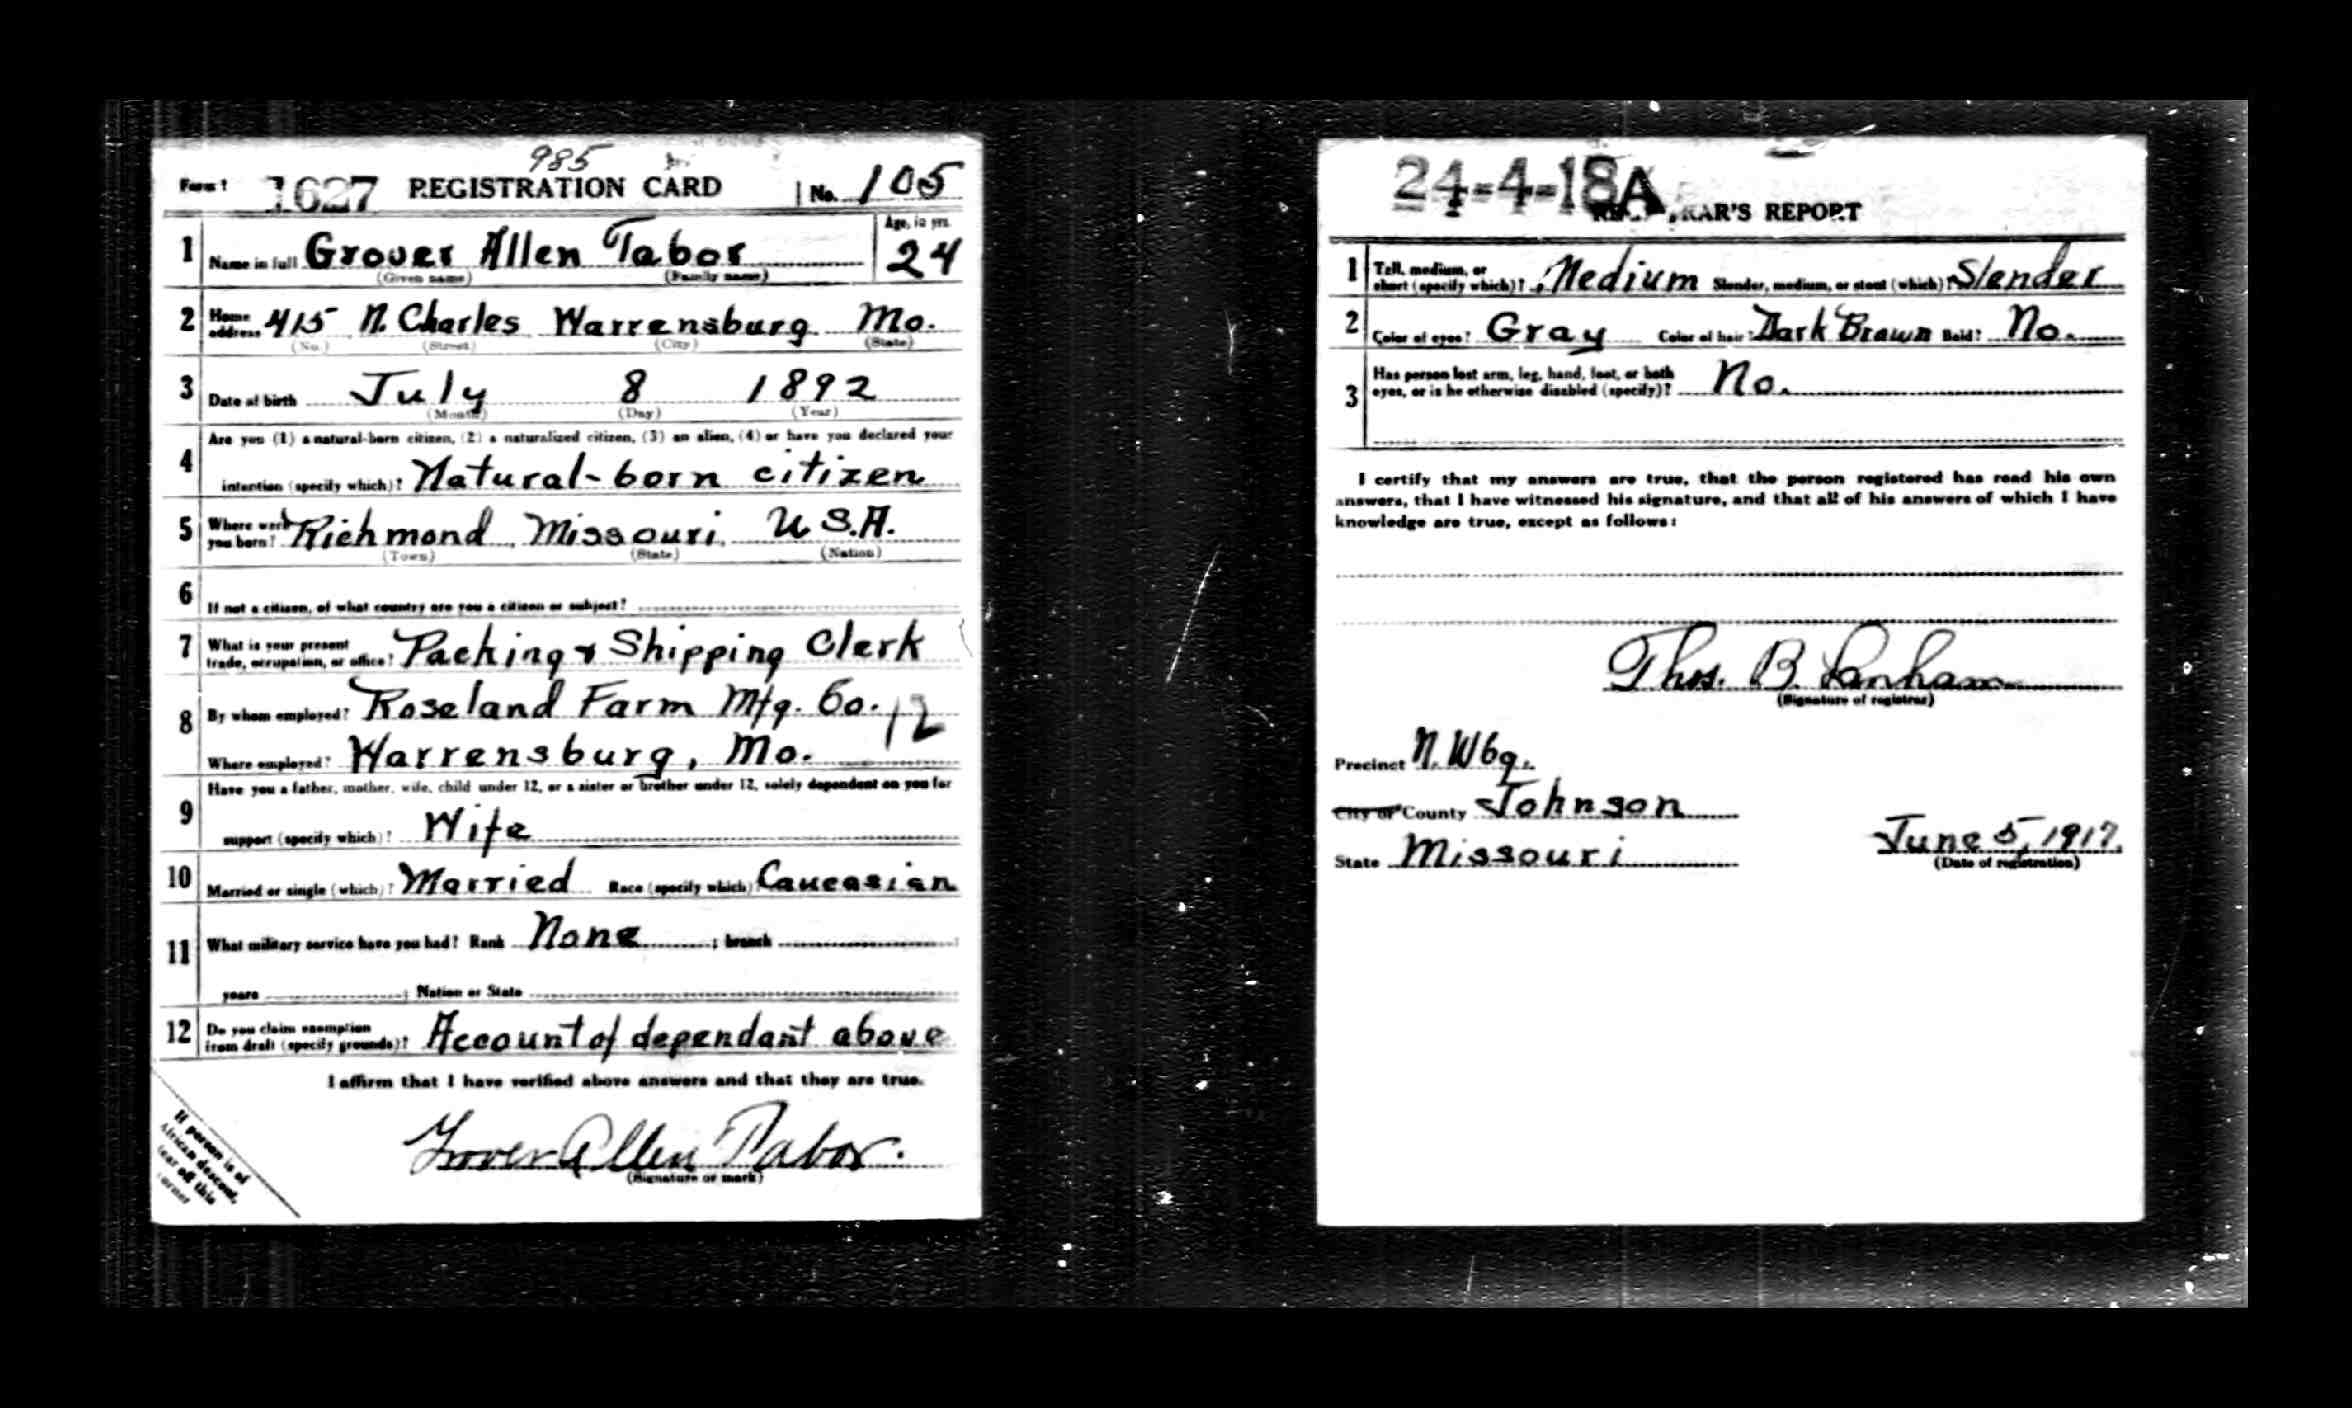 985
Form 1 1627 REGISTRATION CARD No. 105
1 Name in full Grover Allen Tabor Age, in yrs. 24
(Given name) (Family name)
2 Home address 415 N. Charles Warrensburg Mo.
(No.) (Street) (City) (State)
3 Date of birth July 8 1892
(Month) (Day) (Year)
4 Are you (1) a natural-born citizen, (2) a naturalized citizen, (3) an alien, (4) or have you declared your
intention (specify which)? Natural-born citizen
5 Where were you born? Richmond, Missouri, U.S.A.
(Town) (State) (Nation)
6 If not a citizen, of what country are you a citizen or subject?
7 What is your present trade, occupation, or office? Packing & Shipping Clerk
8 By whom employed? Roseland Farm Mfg. Co. 12
Where employed? Warrensburg, Mo.
9 Have you a father, mother, wife, child under 12, or a sister or brother under 12, solely dependent on you for
support (specify which)? Wife
10 Married or single (which)? Married Race (specify which)? Caucasian
11 What military service have you had? Rank None ; branch ;
years ; Nation or State
12 Do you claim exemption from draft (specify grounds)? Account of dependant above
I affirm that I have verified above answers and that they are true.
Grover Allen Tabor.
(Signature or mark)
If person is of
African descent,
tear off this
corner
24-4-18 A
REGISTRAR'S REPORT
1 Tall, medium, or short (specify which)? Medium Slender, medium, or stout (which)? Slender
2 Color of eyes? Gray Color of hair? Dark Brown Bald? No.
3 Has person lost arm, leg, hand, foot, or both
eyes, or is he otherwise disabled (specify)? No.
I certify that my answers are true, that the person registered has read his own
answers, that I have witnessed his signature, and that all of his answers of which I have
knowledge are true, except as follows:
Thos. B. Lanham
(Signature of registrar)
Precinct N. Wbg.
City or County Johnson
State Missouri June 5, 1917.
(Date of registration)